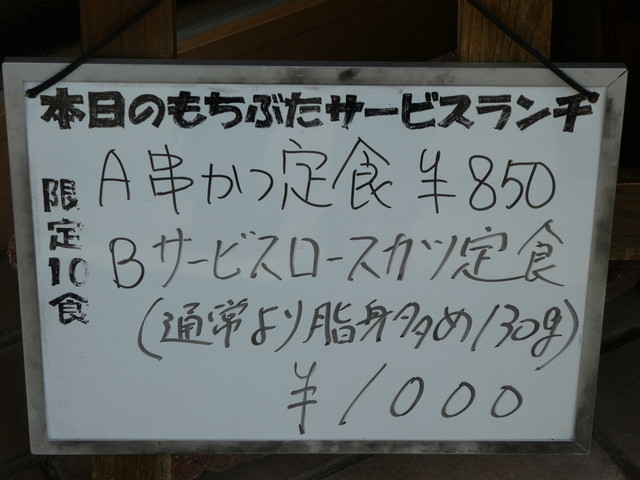 本日のもちぶたサービスランチ
限定10食
A 串かつ定食 ¥850
B サービスロースカツ定食
(通常より脂身多め130g)
¥1000